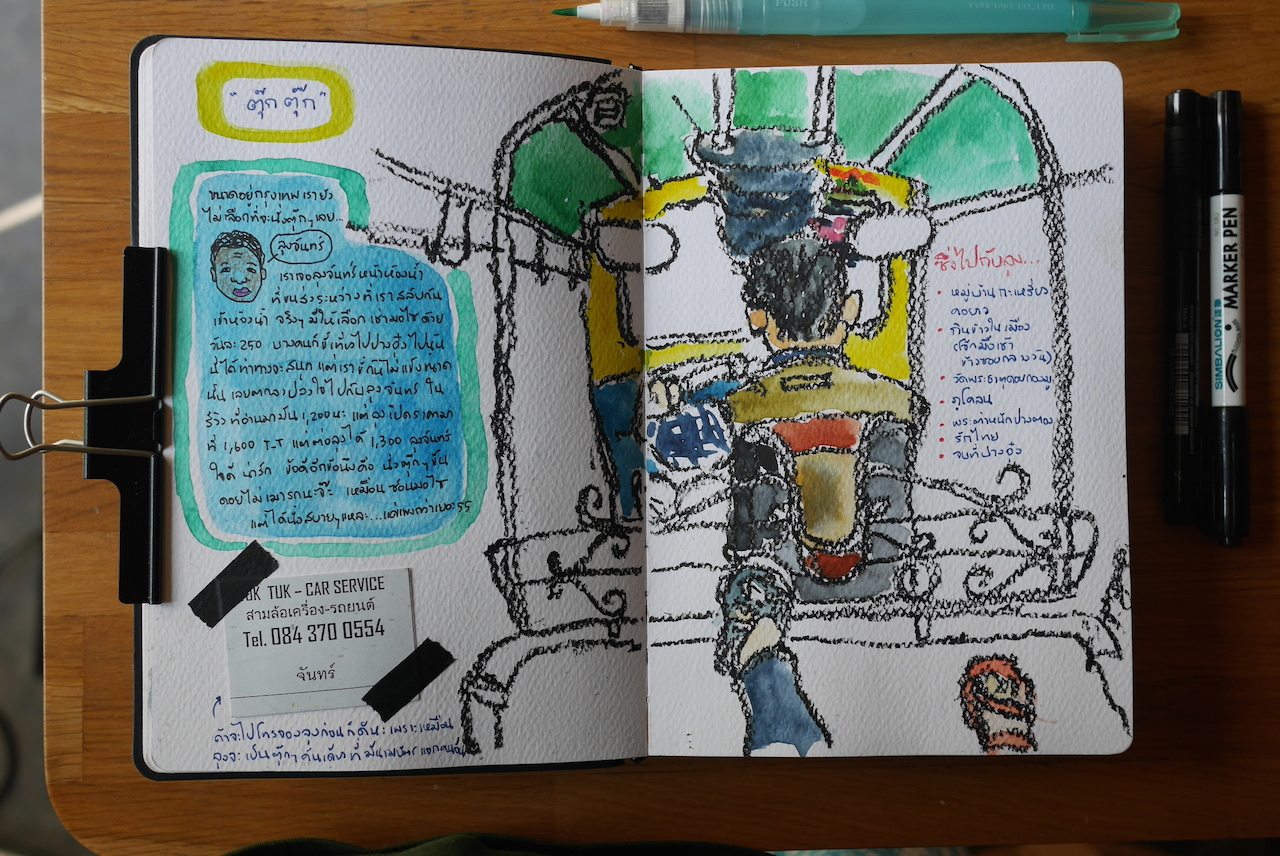 "ตุ๊ก ตุ๊ก"
ขนาดอยู่กรุงเทพ เรายัง
ไม่เลือกที่จะนั่งตุ๊กๆเลย...
ลุงจันทร์
เราเจอลุงจันทร์หน้าห้องน้ำ
ที่ขนส่งระหว่างที่เราสลับกัน
เข้าห้องน้ำ จริงๆ มีให้เลือกเช่ามอไซด้วย
วันละ 250 บางคนก็ขี่เที่ยวไปปางอุ๋งไปนู้น
นี่ได้ท่าทางจะสนุก แต่เราขี่กันไม่แข็งขนาด
นั้น เลยตกลงปลงใจไปกับลุงจันทร์ ใน
รีวิวที่อ่านมามัน 1,200 นะ แต่ลุงเปิดราคามา
ที่ 1,600 T-T แต่ต่อลงได้ 1,300 ลุงจันทร์
ใจดี น่ารัก ข้อดีอีกข้อนึงคือ นั่งตุ๊กๆขึ้น
ดอยไม่เมารถนะจ๊ะ เหมือนซ้อนมอไซ
แต่ได้นั่งสบายๆแหละ...แต่แพงกว่าเยอะ 55
TUK – CAR SERVICE
สามล้อเครื่อง-รถยนต์
Tel. 084 370 0554
จันทร์
ถ้าจะไปโทรจองลุงก่อนก็ดีนะ เพราะเหมือน
ลุงจะเป็นตุ๊กๆคันเดียวที่มีนามบัตรแจก
ซึ่งไปกับลุง...
• หมู่บ้านกะเหรี่ยง
คอยาว
• กินข้าวในเมือง
(โจ๊กมื้อเช้า
ข้าวซอยกลางวัน)
• วัดพระธาตุดอยกองมู
• ภูโคลน
• พระตำหนักปางตอง
• รักไทย
• จบที่ปางอุ๋ง
PUSH
KURETAKE CO., LTD.
SIMBALION MARKER PEN